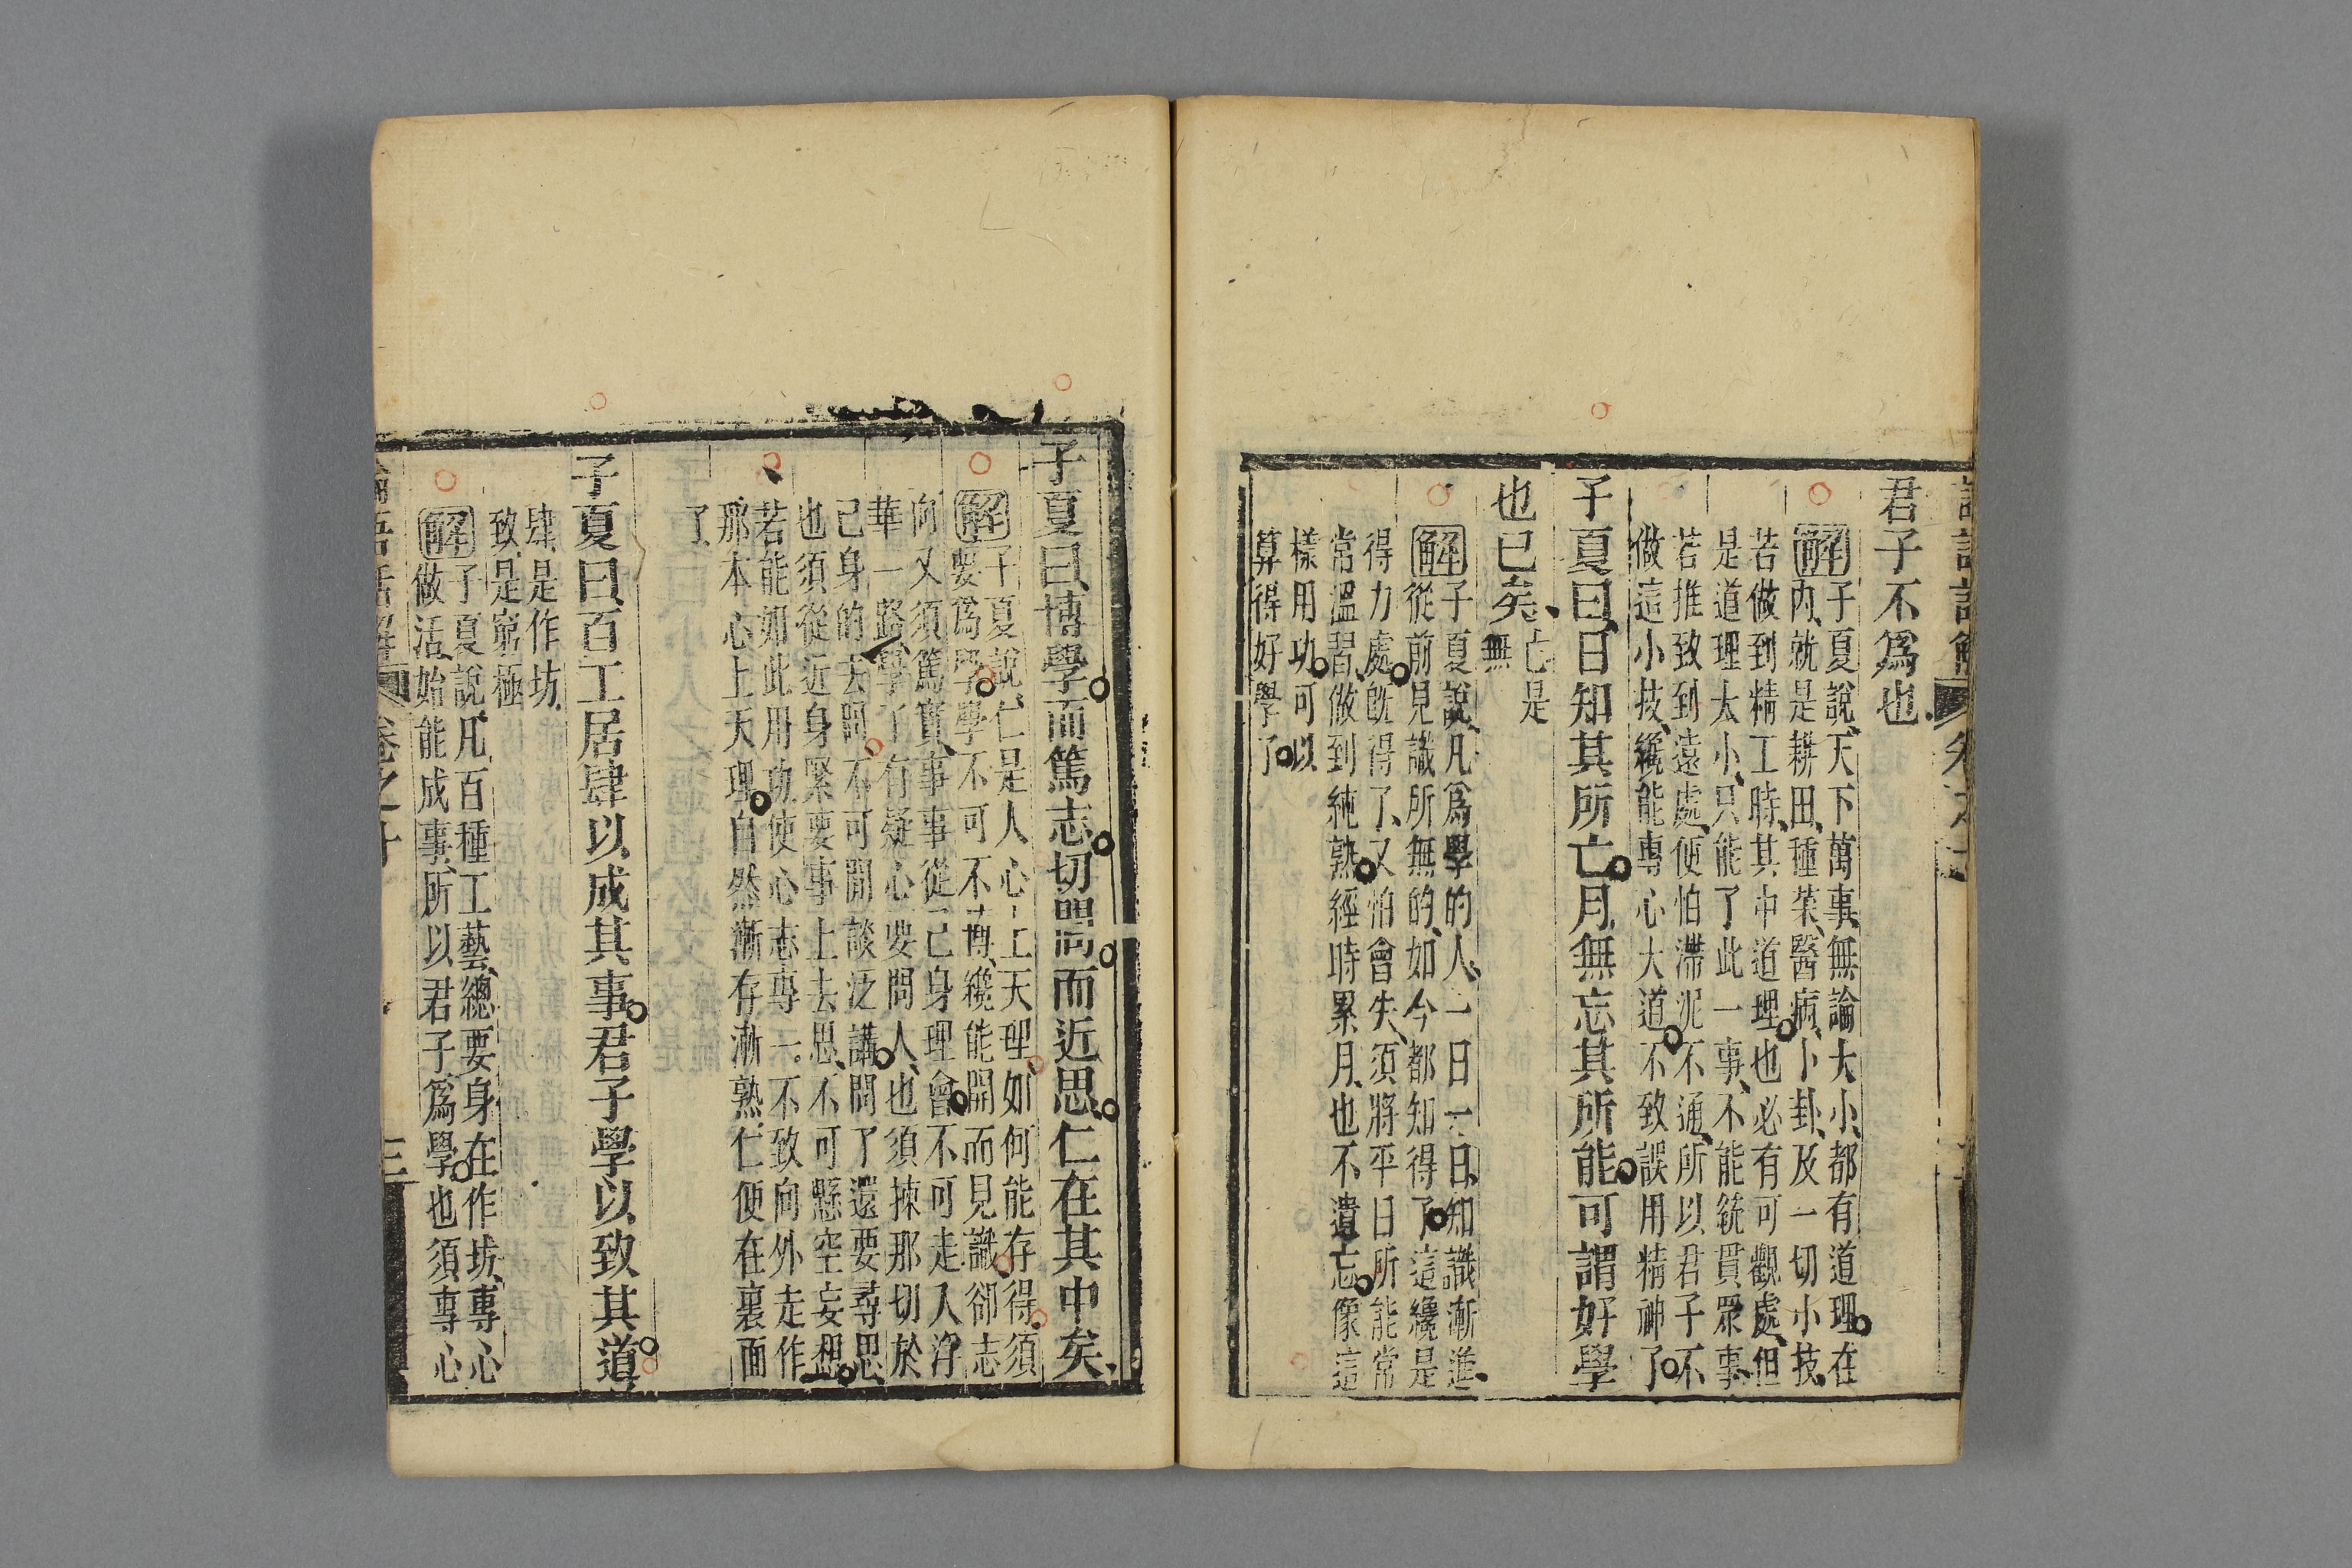 君子不爲也
解子夏說天下萬事無論大小都有道理在
內就是耕田種菜醫病卜卦及一切小技
若做到精工時其中道理也必有可觀處但
是道理太小只能了此一事不能統貫眾事
若推致到遠處便怕滯泥不通所以君子不
做這小技纔能專心大道不致誤用精神了
子夏曰日知其所亡月無忘其所能可謂好學
也已矣亡是
無
解子夏說凡爲學的人一日一日知識漸進
從前見識所無的如今都知得了這纔是
得力處旣得了又怕會失須將平日所能常
常溫習做到純熟經時累月也不遺忘像這
樣用功可以
算得好學了
子夏曰博學而篤志切問而近思仁在其中矣
解子夏說仁是人心上天理如何能存得須
要爲學學不可不博纔能開而見識卻志
向又須篤實事事從己身理會不可走入浮
華一路學了有疑心要問人也須揀那切於
己身的去問不可閒談泛講問了還要尋思
也須從近身緊要事上去思不可懸空妄想
若能如此用功使心志專一不致向外走作
那本心上天理自然漸存漸熟仁便在裏面
了
子夏曰百工居肆以成其事君子學以致其道
肆是作坊
致是窮極
解子夏說凡百種工藝總要身在作坊專心
做活始能成事所以君子爲學也須專心
論語話解
卷之十
三